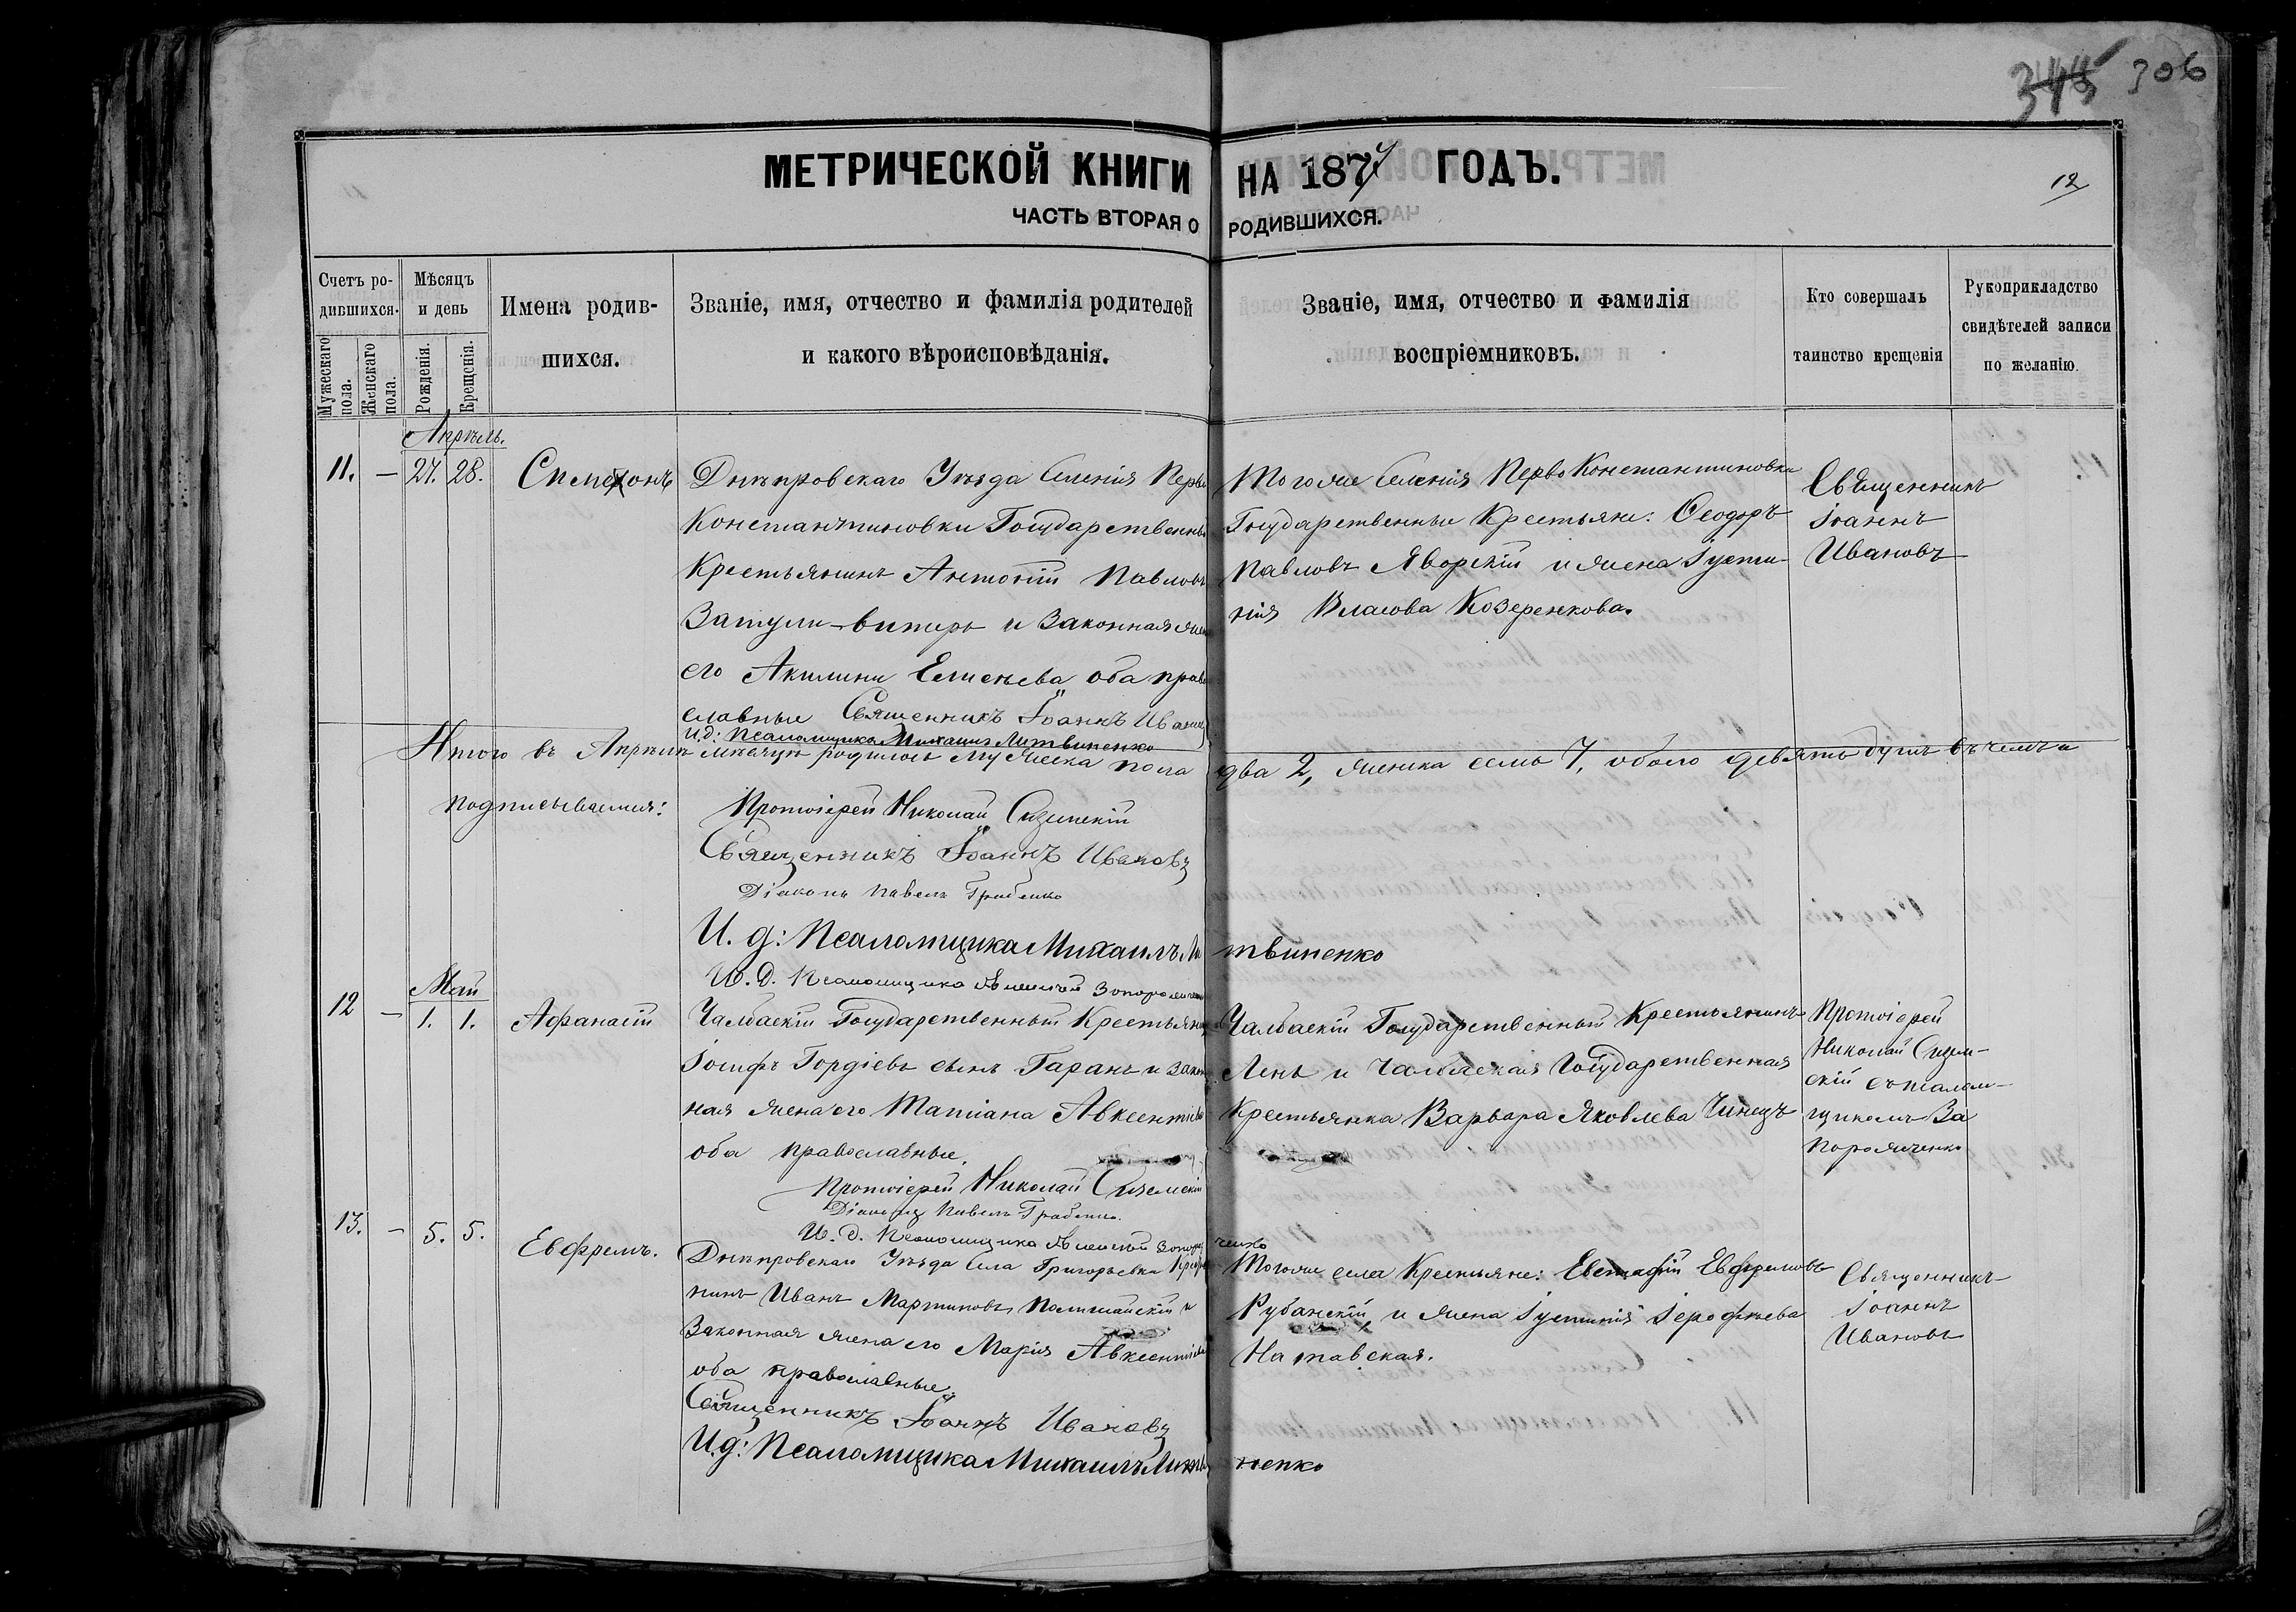 345 306
МЕТРИЧЕСКОЙ КНИГИ НА 1874 ГОДЪ.
12
ЧАСТЬ ВТОРАЯ О РОДИВШИХСЯ.
Счетъ ро-
дившихся.
Мужескаго пола.
Женскаго пола.
Мѣсяцъ
и день
Рожденія.
Крещенія.
Имена родив-
шихся.
Званіе, имя, отчество и фамилія родителей
и какого вѣроисповѣданія.
Званіе, имя, отчество и фамилія
воспріемниковъ.
Кто совершалъ
таинство крещенія
Рукоприкладство
свидѣтелей записи
по желанію.
Апрѣль.
11. — 27. 28. Симеонъ
Днѣпровскаго Уѣзда Селенія Перво
Константиновки Государственны
Крестьянинъ Антоній Павловъ
Затули-витеръ и законная жен
его Акилина Елисеева оба право
славные Священникъ Іоаннъ Ивановъ
И.д: Псаломщика Михаилъ Литвиненко
Тогоже Селенія Перво Константиновки
Государственные Крестьяне: Ѳеодоръ
Павловъ Яворскій и жена Іусти-
нія Власова Козеренкова.
Священникъ
Іоаннъ
Ивановъ
Итого въ Апрѣлѣ мѣсяцѣ родилось мужеска пола два 2, женска семь 7, обоего девять душъ въ чемъ и
подписываемся: Протоіерей Николай
Священникъ Іоаннъ Ивановъ
Діаконъ Павелъ Грабенко
И. д: Псаломщика Михаилъ Литвиненко
И. д. Псаломщика Алексѣй Запорожченко
Май
12 — 1. 1. Афанасій
Чалбаскій Государственный Крестьянин
Іосифъ Гордіевъ сынъ Гаранъ и закон
ная жена его Татіана Авксентіева
оба православные.
Протоіерей Николай
Діаконъ Павелъ Грабенко.
И. д. Псаломщика Алексѣй Запорожченко
Чалбаскій Государственный Крестьянинъ
и Чалбаская Государственная
Крестьянка Варвара Яковлева Чинецъ
Протоіерей
Николай
скій съ псалом-
щикомъ За
порожченко
13. — 5. 5. Евфремъ.
Днѣпровскаго Уѣзда Села Григорьевки Крестья
нинъ Иванъ Мартиновъ и
Законная жена его Марія Авксентіева
оба православные.
Священникъ Іоаннъ Ивановъ
И.д: Псаломщика Михаилъ Литвиненко
Тогоже села Крестьяне: Евстафій Евфремовъ
Рубанскій и жена Іустинія Іерофѣева
Натавская.
Священникъ
Іоаннъ
Ивановъ